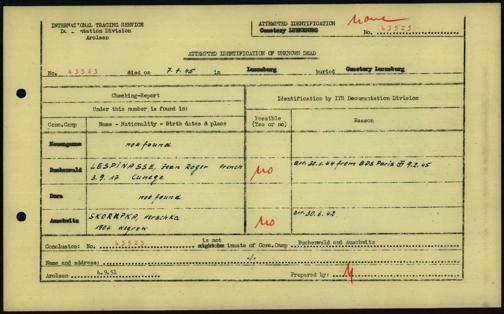 INTERNATIONAL TRACING SERVICE
Documentation Division
Arolsen
ATTEMPTED IDENTIFICATION
Cemetery LUNEBURG
none
No. 43523
ATTEMPTED IDENTIFICATION OF UNKNOWN DEAD
No. 43523 died on 7.4.45 in Luneburg buried Cemetery Luneburg
Checking-Report
Under this number is found in:
Identification by ITS Documentation Division
Conc.Camp
Name - Nationality - Birth dates & place
Possible
(Yes or no)
Reason
Neuengamme
not found
Buchenwald
LESPINASSE, Jean Roger French
3.9.17
no
arr. 22.1.44 from BDS Paris
9.2.45
Dora
not found
Auschwitz
SKORUPKA, Herschka
1904 Wegrow
no
arr. 30.6.42
Conclusion: No. 43523 is not inmate of Conc.Camp Buchenwald and Auschwitz
Name and address: ./.
Arolsen 4.9.51
Prepared by: